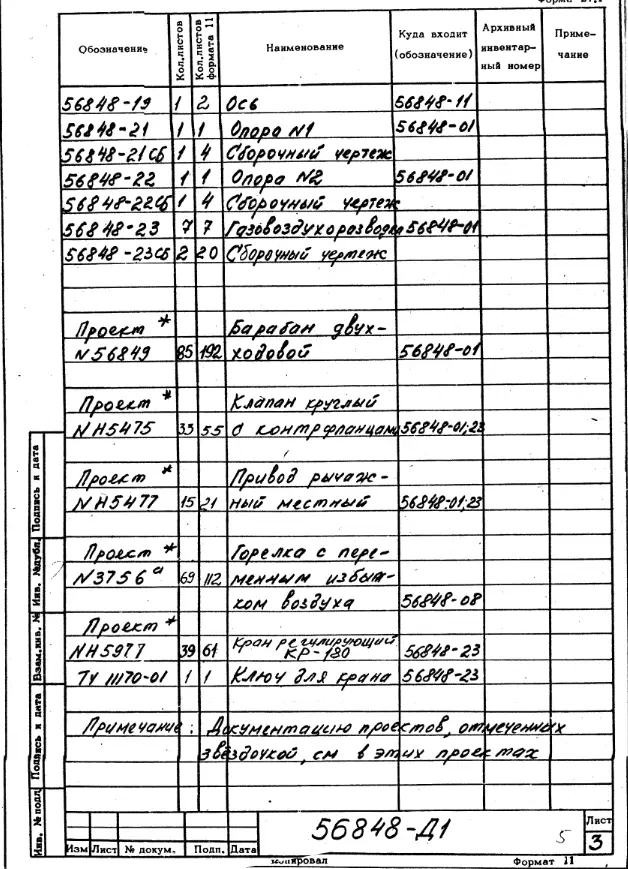 Обозначение Кол.листов Кол.листов формата 11 Наименование Куда входит (обозначение) Архивный инвентар-ный номер Приме-чание
56848-19 1 2 Ось 56848-11
56848-21 1 1 Опора N1 56848-01
56848-21СБ 1 4 Сборочный чертеж
56848-22 1 1 Опора N2 56848-01
56848-22СБ 1 4 Сборочный чертеж
56848-23 7 7 Газовоздухоразводка 56848-01
56848-23СБ 2 20 Сборочный чертеж
Проект * Барабан двух-
N 56849 85 192 ходовой 56848-01
Проект * Клапан круглый
N Н5475 33 55 с контрфланцами 56848-01;23
Проект * Привод рычаж-
N Н5477 15 21 ный местный 56848-01;23
Проект * Горелка с пере-
N 3756а 69 112 менным избыт-
ком воздуха 56848-08
Проект *
N Н5977 39 61 Кран регулирующий КР-180 56848-23
ТУ 11170-01 1 1 Ключ для крана 56848-23
Примечание: Документацию проектов, отмеченных
звёздочкой, см в этих проектах
Инв. № подл. Подпись и дата Взам.инв. № Инв. №дубл. Подпись и дата
56848-Д1 5
Лист
3
Изм Лист № докум. Подп. Дата
копировал Формат 11